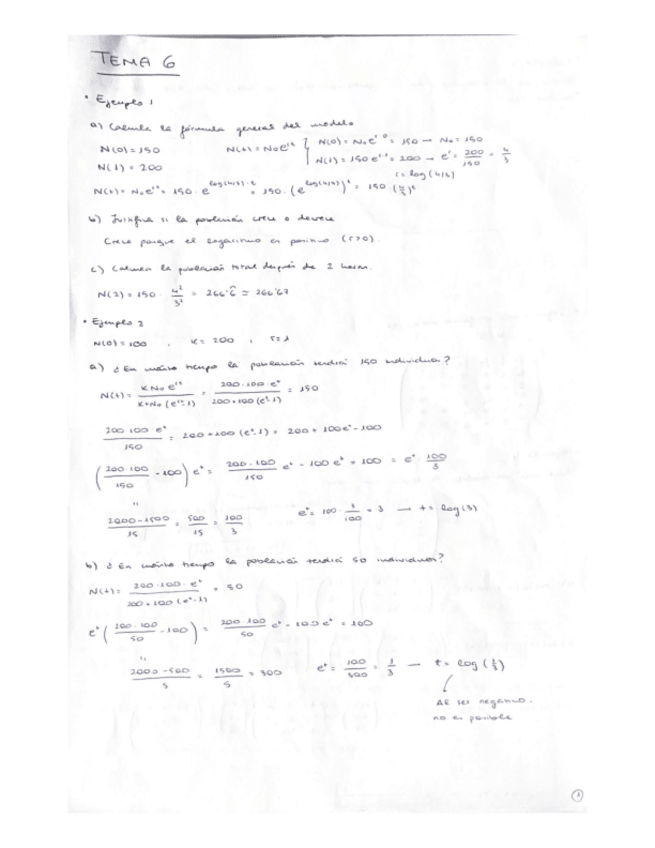 TEMA 6
• Ejemplo 1
a) Calcula la fórmula general del modelo
N(0) = 150 N(t) = N₀e^rt { N(0) = N₀e^r·0 = 150 → N₀ = 150
N(1) = 200 N(1) = 150 e^r·1 = 200 → e^r = 200/150 = 4/3
r = log(4/3)
N(t) = N₀e^rt = 150 · e^log(4/3)·t = 150 · (e^log(4/3))^t = 150 (4/3)^t
b) Justifica si la población crece o decrece
Crece porque el logaritmo es positivo (r>0).
c) Calcula la población total después de 2 horas.
N(2) = 150 · 4²/3² = 266'6̂ ≃ 266'67
• Ejemplo 2
N(0) = 100 , K = 200 , r = 1
a) ¿En cuánto tiempo la población tendrá 150 individuos?
N(t) = K N₀ e^rt / K + N₀ (e^rt - 1) = 200 · 100 · e^t / 200 + 100 (e^t - 1) = 150
200 · 100 · e^t / 150 = 200 + 100 (e^t - 1) = 200 + 100e^t - 100
(200 · 100 / 150 - 100) e^t = 200 · 100 / 150 e^t - 100 e^t = 100 = e^t 100/3
"
2000 - 1500 / 15 = 500/15 = 100/3 e^t = 100 · 3/100 = 3 → t = log(3)
b) ¿En cuánto tiempo la población tendrá 50 individuos?
N(t) = 200 · 100 · e^t / 200 + 100 (e^t - 1) = 50
e^t (200 · 100 / 50 - 100) = 200 · 100 / 50 e^t - 100 e^t = 100
"
2000 - 500 / 5 = 1500/5 = 300 e^t = 100/300 = 1/3 → t = log(1/3)
Al ser negativo,
no es posible
1